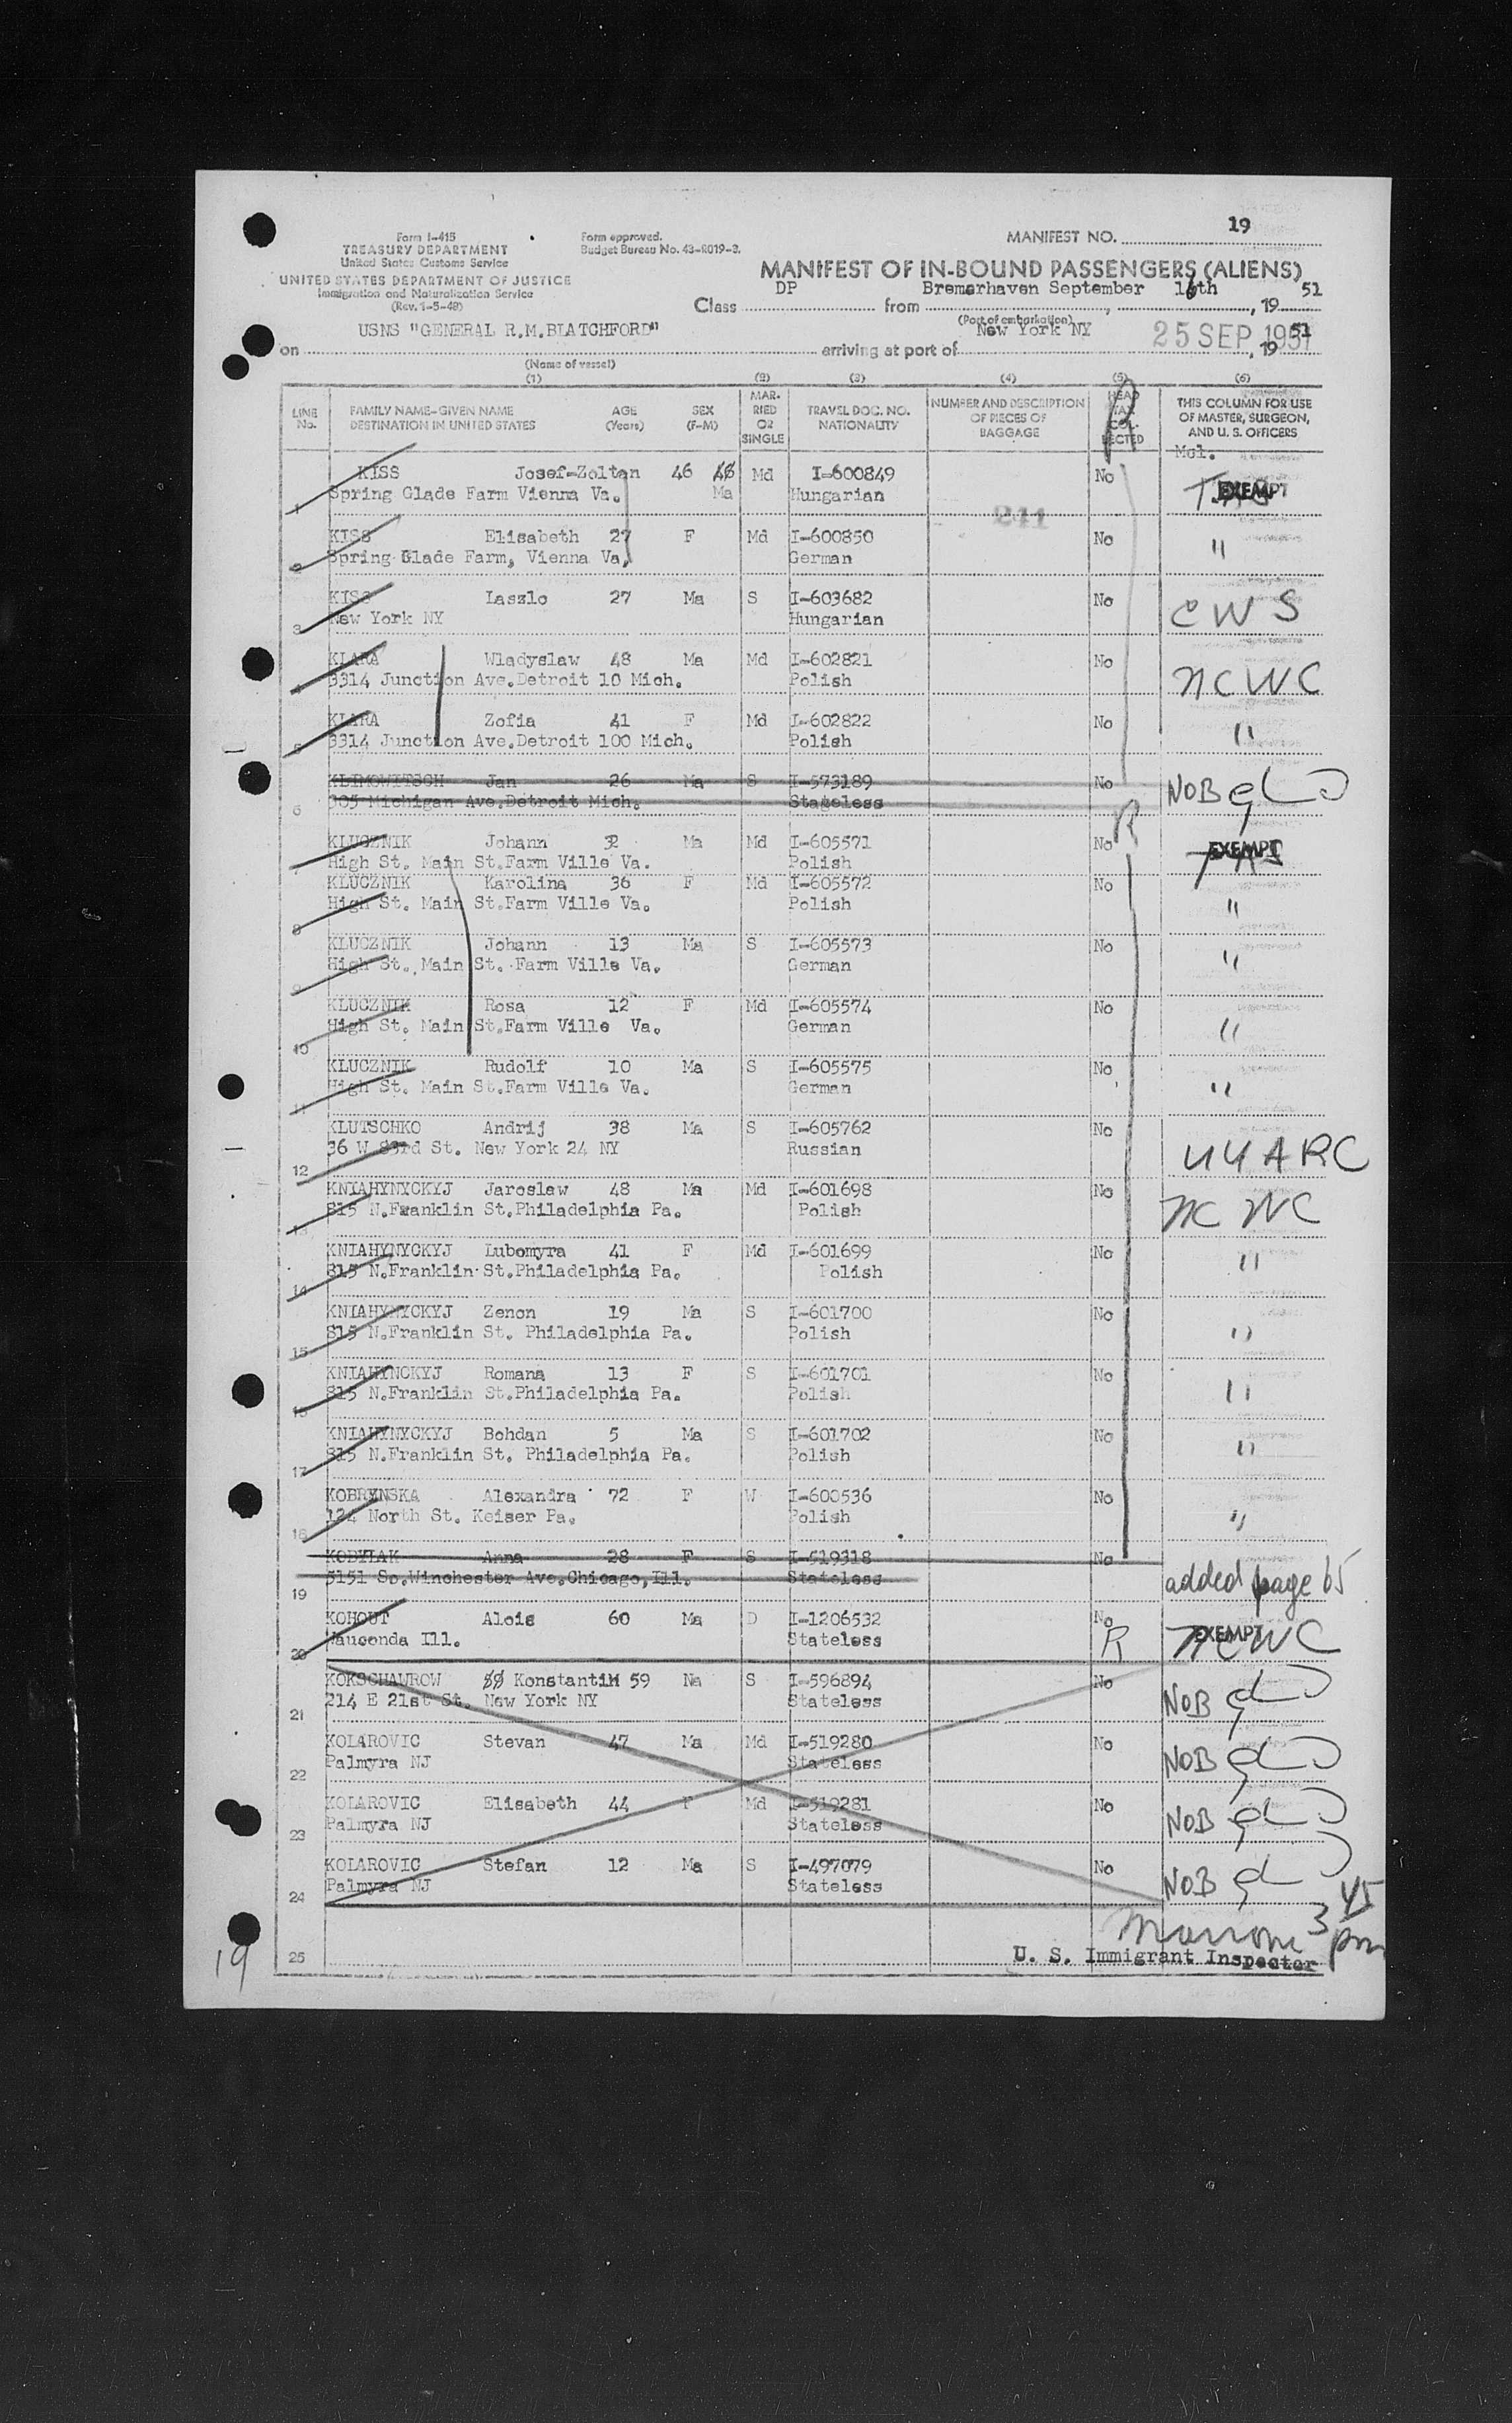 19
Form I-415
TREASURY DEPARTMENT
United States Customs Service
UNITED STATES DEPARTMENT OF JUSTICE
Immigration and Naturalization Service
(Rev. 1-5-49)
Form approved.
Budget Bureau No. 43-R019-2.
MANIFEST NO.
MANIFEST OF IN-BOUND PASSENGERS (ALIENS)
Class DP from Bremerhaven September 16th, 19 51
(Port of embarkation)
on USNS "GENERAL R.M.BLATCHFORD" arriving at port of New York NY 25 SEP 1951, 19 51
(Name of vessel)
(1) (2) (3) (4) (5) (6)
LINE No. FAMILY NAME-GIVEN NAME DESTINATION IN UNITED STATES AGE (Years) SEX (F-M) MARRIED OR SINGLE TRAVEL DOC. NO. NATIONALITY NUMBER AND DESCRIPTION OF PIECES OF BAGGAGE HEAD TAX COLLECTED THIS COLUMN FOR USE OF MASTER, SURGEON, AND U. S. OFFICERS
R
1 KISS Josef-Zoltan 46 Md I-600849 No EXEMPT
Spring Glade Farm Vienna Va. Ma Hungarian
241
2 KISS Elisabeth 27 F Md I-600850 No "
Spring Glade Farm, Vienna Va. German
3 KISS Laszlo 27 Ma S I-603682 No CWS
New York NY Hungarian
4 KLARA Wladyslaw 48 Ma Md I-602821 No NCWC
3314 Junction Ave.Detroit 10 Mich. Polish
5 KLARA Zofia 41 F Md I-602822 No "
3314 Junction Ave.Detroit 100 Mich. Polish
6 KLIMOWITSCH Jan 26 Ma S I-573189 No NOB
305 Michigan Ave.Detroit Mich. Stateless
R
7 KLUCZNIK Johann 32 Ma Md I-605571 No EXEMPT
High St. Main St.Farm Ville Va. Polish
8 KLUCZNIK Karolina 36 F Md I-605572 No "
High St. Main St.Farm Ville Va. Polish
9 KLUCZNIK Johann 13 Ma S I-605573 No "
High St., Main St. Farm Ville Va. German
10 KLUCZNIK Rosa 12 F Md I-605574 No "
High St. Main St.Farm Ville Va. German
11 KLUCZNIK Rudolf 10 Ma S I-605575 No "
High St. Main St.Farm Ville Va. German
12 KLUTSCHKO Andrij 38 Ma S I-605762 No UUARC
36 W 83rd St. New York 24 NY Russian
13 KNIAHYNYCKYJ Jaroslaw 48 Ma Md I-601698 No NCWC
815 N.Franklin St.Philadelphia Pa. Polish
14 KNIAHYNYCKYJ Lubomyra 41 F Md I-601699 No "
815 N.Franklin St.Philadelphia Pa. Polish
15 KNIAHYNYCKYJ Zenon 19 Ma S I-601700 No "
815 N.Franklin St. Philadelphia Pa. Polish
16 KNIAHYNCKYJ Romana 13 F S I-601701 No "
815 N.Franklin St.Philadelphia Pa. Polish
17 KNIAHYNYCKYJ Bohdan 5 Ma S I-601702 No "
815 N.Franklin St. Philadelphia Pa. Polish
18 KOBRYNSKA Alexandra 72 F W I-600536 No "
124 North St. Keiser Pa. Polish
19 KODYIAK Anna 28 F S I-519318 No added page 65
5151 So.Winchester Ave.Chicago,Ill. Stateless
20 KOHOUT Alois 60 Ma D I-1206532 No R EXEMPT NCWC
Wauconda Ill. Stateless
21 KOKSCHAWROW Konstantin 59 Na S I-596894 No NOB
214 E 21st St. New York NY Stateless
22 KOLAROVIC Stevan 47 Ma Md I-519280 No NOB
Palmyra NJ Stateless
23 KOLAROVIC Elisabeth 44 F Md I-519281 No NOB
Palmyra NJ Stateless
24 KOLAROVIC Stefan 12 Ma S I-497079 No NOB
Palmyra NJ Stateless
3 45 pm
25 U. S. Immigrant Inspector
19